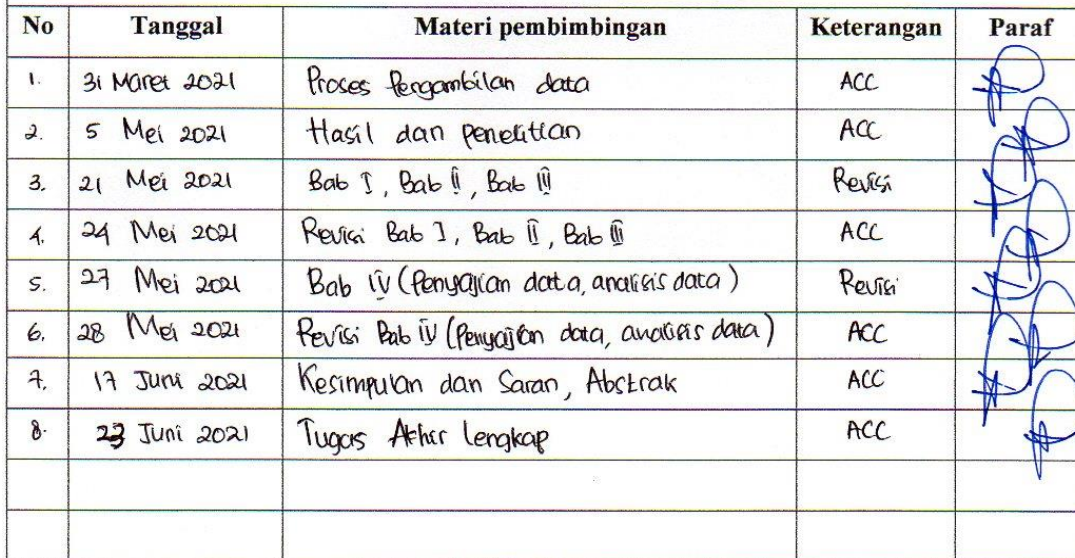 No Tanggal Materi pembimbingan Keterangan Paraf
1. 31 Maret 2021 Proses Pengambilan data ACC
2. 5 Mei 2021 Hasil dan penelitian ACC
3. 21 Mei 2021 Bab I, Bab II, Bab III Revisi
4. 24 Mei 2021 Revisi Bab I, Bab II, Bab III ACC
5. 27 Mei 2021 Bab IV (Penyajian data, analisis data) Revisi
6. 28 Mei 2021 Revisi Bab IV (Penyajian data, analisis data) ACC
7. 17 Juni 2021 Kesimpulan dan Saran, Abstrak ACC
8. 23 Juni 2021 Tugas Akhir Lengkap ACC